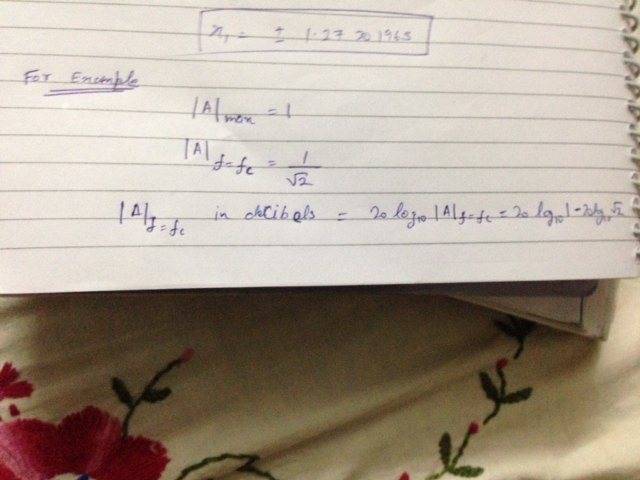 x₁ = ± 1.27201965
For Example
|A|max = 1
|A| f=fc = 1/√2
|A| f=fc in decibels = 20 log₁₀ |A| f=fc = 20 log₁₀ 1 - 20 log₁₀ √2